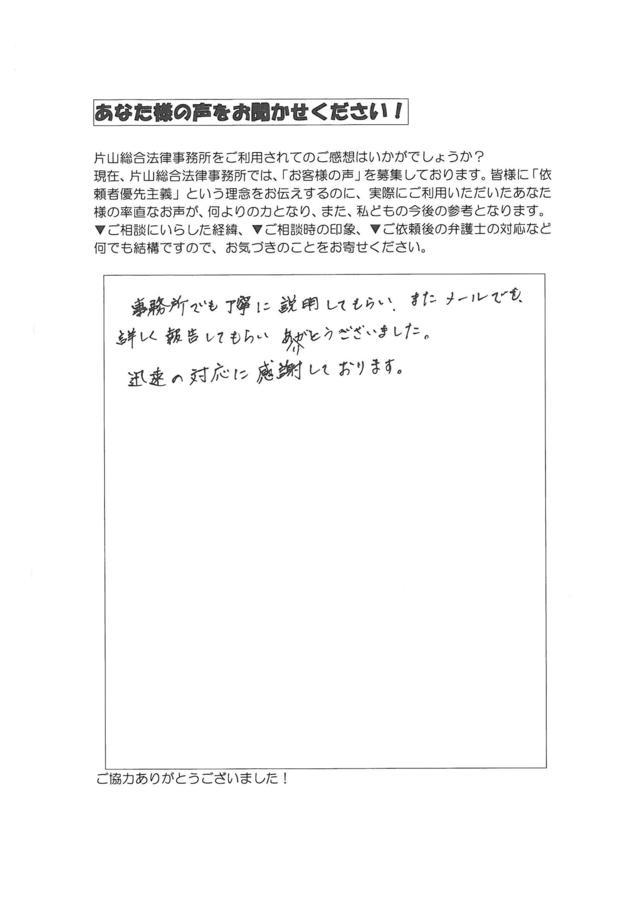 あなた様の声をお聞かせください！
片山総合法律事務所をご利用されてのご感想はいかがでしょうか？
現在、片山総合法律事務所では、「お客様の声」を募集しております。皆様に「依
頼者優先主義」という理念をお伝えするのに、実際にご利用いただいたあなた
様の率直なお声が、何よりの力となり、また、私どもの今後の参考となります。
▼ご相談にいらした経緯、▼ご相談時の印象、▼ご依頼後の弁護士の対応など
何でも結構ですので、お気づきのことをお寄せください。
事務所でも丁寧に説明してもらい、またメールでも、
詳しく報告してもらいありがとうございました。
迅速の対応に感謝しております。
ご協力ありがとうございました！